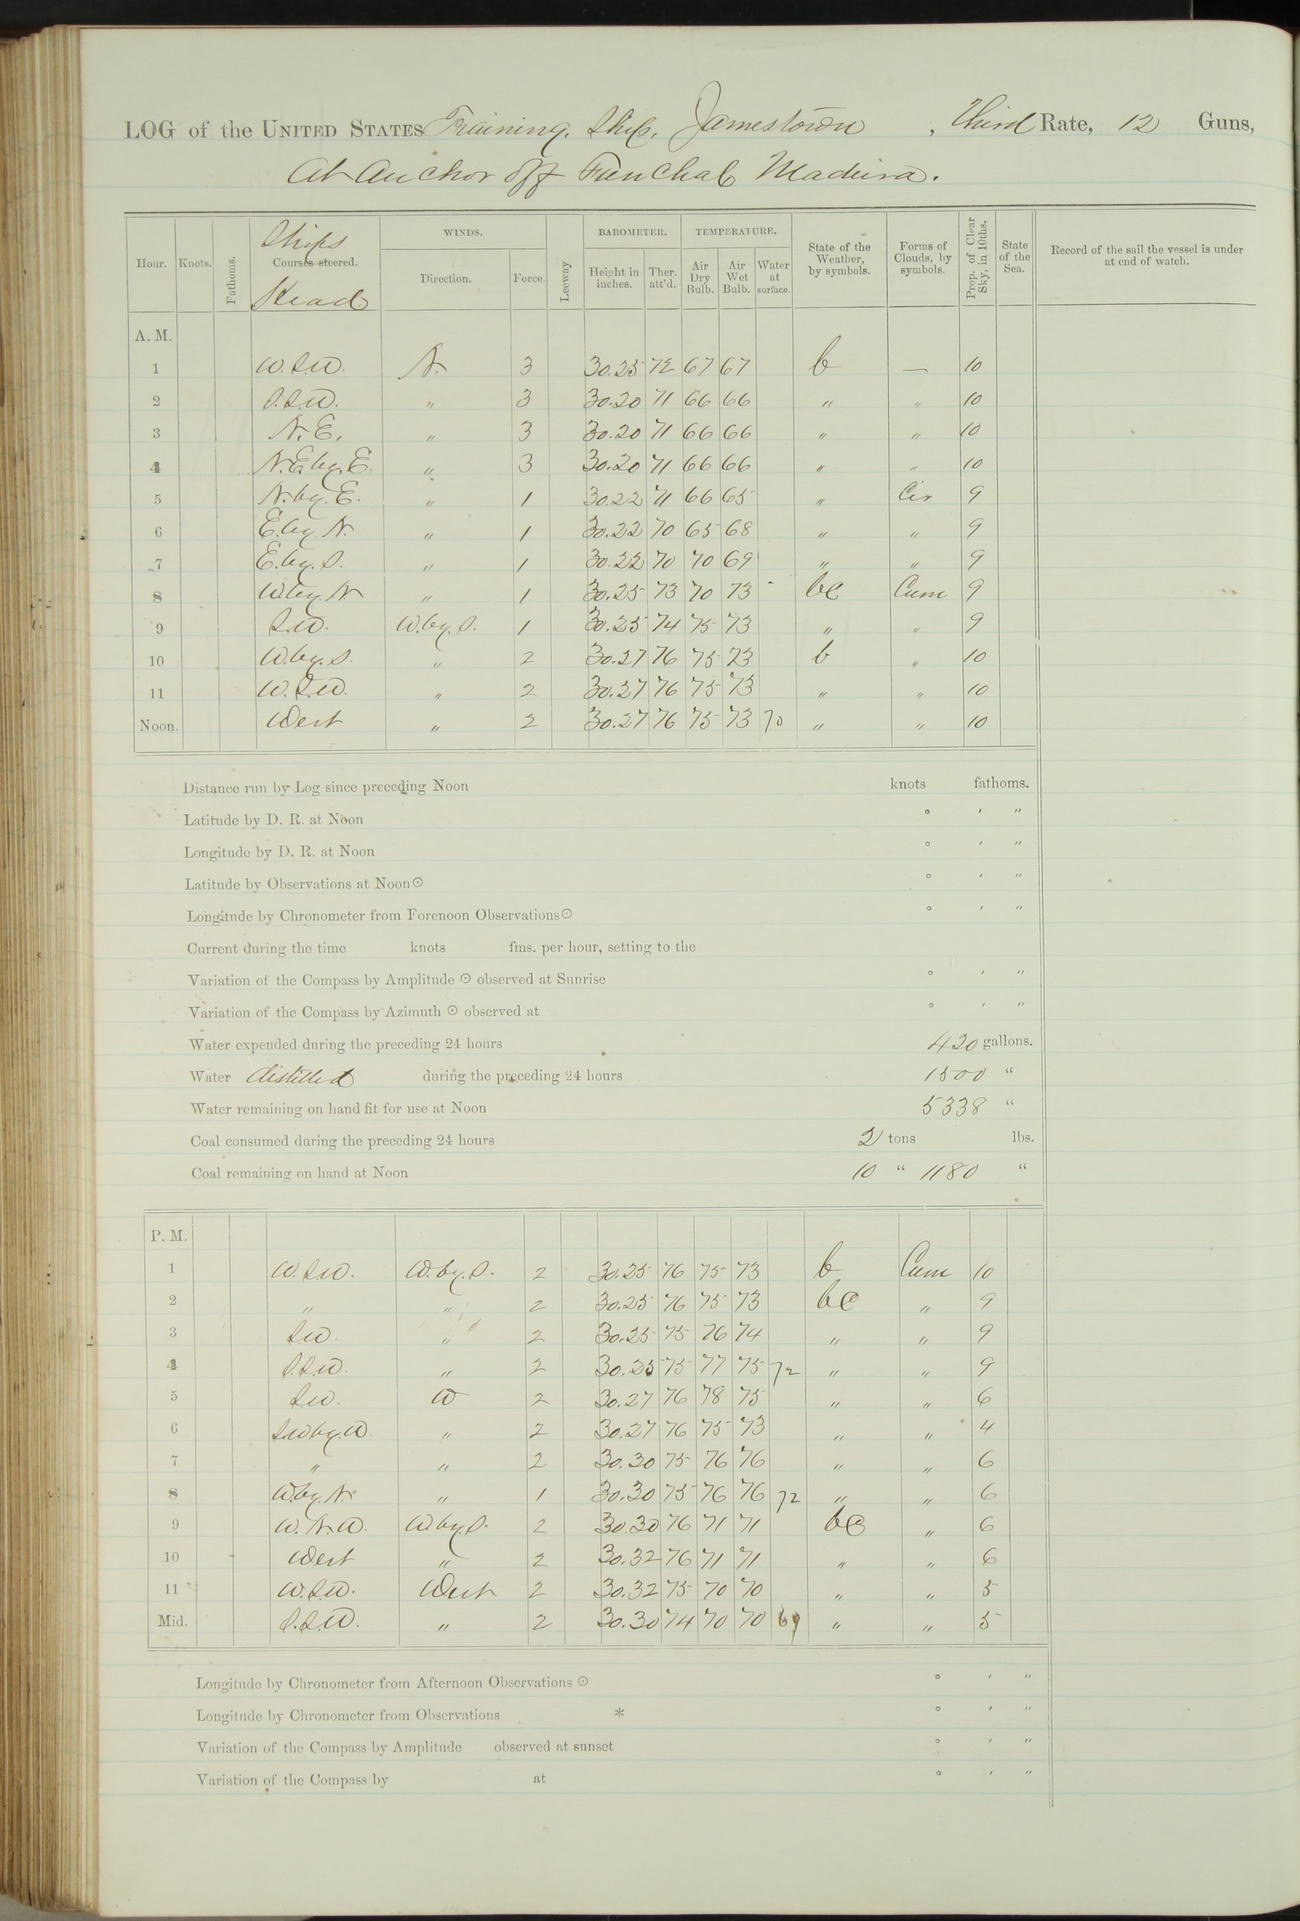 LOG of the UNITED STATES Training Ship, Jamestown, Third Rate, 12 Guns,
At Anchor off Funchal Madeira.
Hour. Knots. Fathoms. Ships Courses steered. Head WINDS. Direction. Force. Leeway BAROMETER. Height in inches. Ther. att'd. TEMPERATURE. Air Dry Bulb. Air Wet Bulb. Water at surface. State of the Weather, by symbols. Forms of Clouds, by symbols. Prop. of Clear Sky, in 10ths. State of the Sea. Record of the sail the vessel is under at end of watch.
A. M.
1 W.S.W. N. 3 30.25 72 67 67 b — 10
2 S.S.W. " 3 30.20 71 66 66 " " 10
3 N.E. " 3 30.20 71 66 66 " " 10
4 N.E by. E. " 3 30.20 71 66 66 " " 10
5 N. by. E. " 1 30.22 71 66 65 " Cir 9
6 E. by. N. " 1 30.22 70 65 68 " " 9
7 E. by. S. " 1 30.22 70 70 69 " " 9
8 W. by. N " 1 30.25 73 70 73 bc Cum 9
9 S.W. W. by. S. 1 30.25 74 75 73 " " 9
10 W. by. S. " 2 30.27 76 75 73 b " 10
11 W.S.W. " 2 30.27 76 75 73 " " 10
Noon. West " 2 30.27 76 75 73 70 " " 10
Distance run by Log since preceding Noon knots fathoms.
Latitude by D. R. at Noon ° ′ ″
Longitude by D. R. at Noon ° ′ ″
Latitude by Observations at Noon ☉ ° ′ ″
Longitude by Chronometer from Forenoon Observations ☉ ° ′ ″
Current during the time knots fms. per hour, setting to the
Variation of the Compass by Amplitude ☉ observed at Sunrise ° ′ ″
Variation of the Compass by Azimuth ☉ observed at ° ′ ″
Water expended during the preceding 24 hours 420 gallons.
Water distilled during the preceding 24 hours 1500 "
Water remaining on hand fit for use at Noon 5338 "
Coal consumed during the preceding 24 hours 2 tons lbs.
Coal remaining on hand at Noon 10 " 1180 "
P. M.
1 W.S.W. W. by. S. 2 30.25 76 75 73 b Cum 10
2 " " 2 30.25 76 75 73 bc " 9
3 SW. " 2 30.25 75 76 74 " " 9
4 S.S.W. " 2 30.25 75 77 75 72 " " 9
5 SW. W 2 30.27 76 78 75 " " 6
6 SW by. W " 2 30.27 76 75 73 " " 4
7 " " 2 30.30 75 76 76 " " 6
8 W. by. N. " 1 30.30 75 76 76 72 " " 6
9 W.N.W. W. by. S. 2 30.30 76 71 71 bc " 6
10 West " 2 30.32 76 71 71 " " 6
11 W.S.W. West 2 30.32 75 70 70 " " 5
Mid. S.S.W. " 2 30.30 74 70 70 69 " " 5
Longitude by Chronometer from Afternoon Observations ☉ ° ′ ″
Longitude by Chronometer from Observations * ° ′ ″
Variation of the Compass by Amplitude observed at sunset ° ′ ″
Variation of the Compass by at ° ′ ″